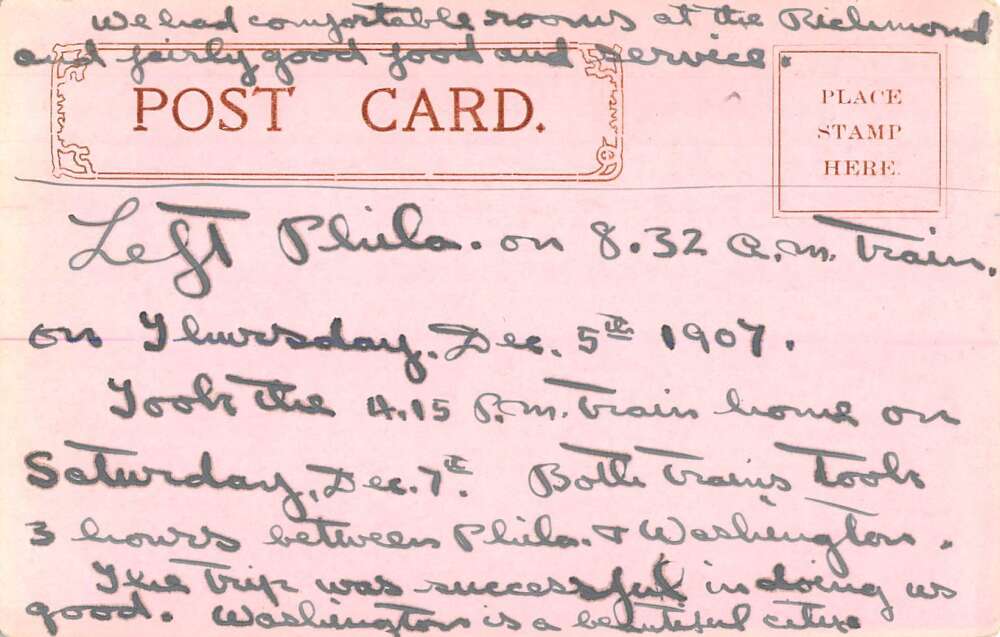 We had comfortable rooms at the Richmond
and fairly good food and service.
POST CARD.
PLACE
STAMP
HERE.
Left Phila. on 8.32 a.m. train.
on Thursday. Dec. 5th 1907.
Took the 4.15 P.m. train home on
Saturday, Dec. 7th. Both trains took
3 hours between Phila. & Washington.
The trip was successful in doing us
good. Washington is a beautiful city.